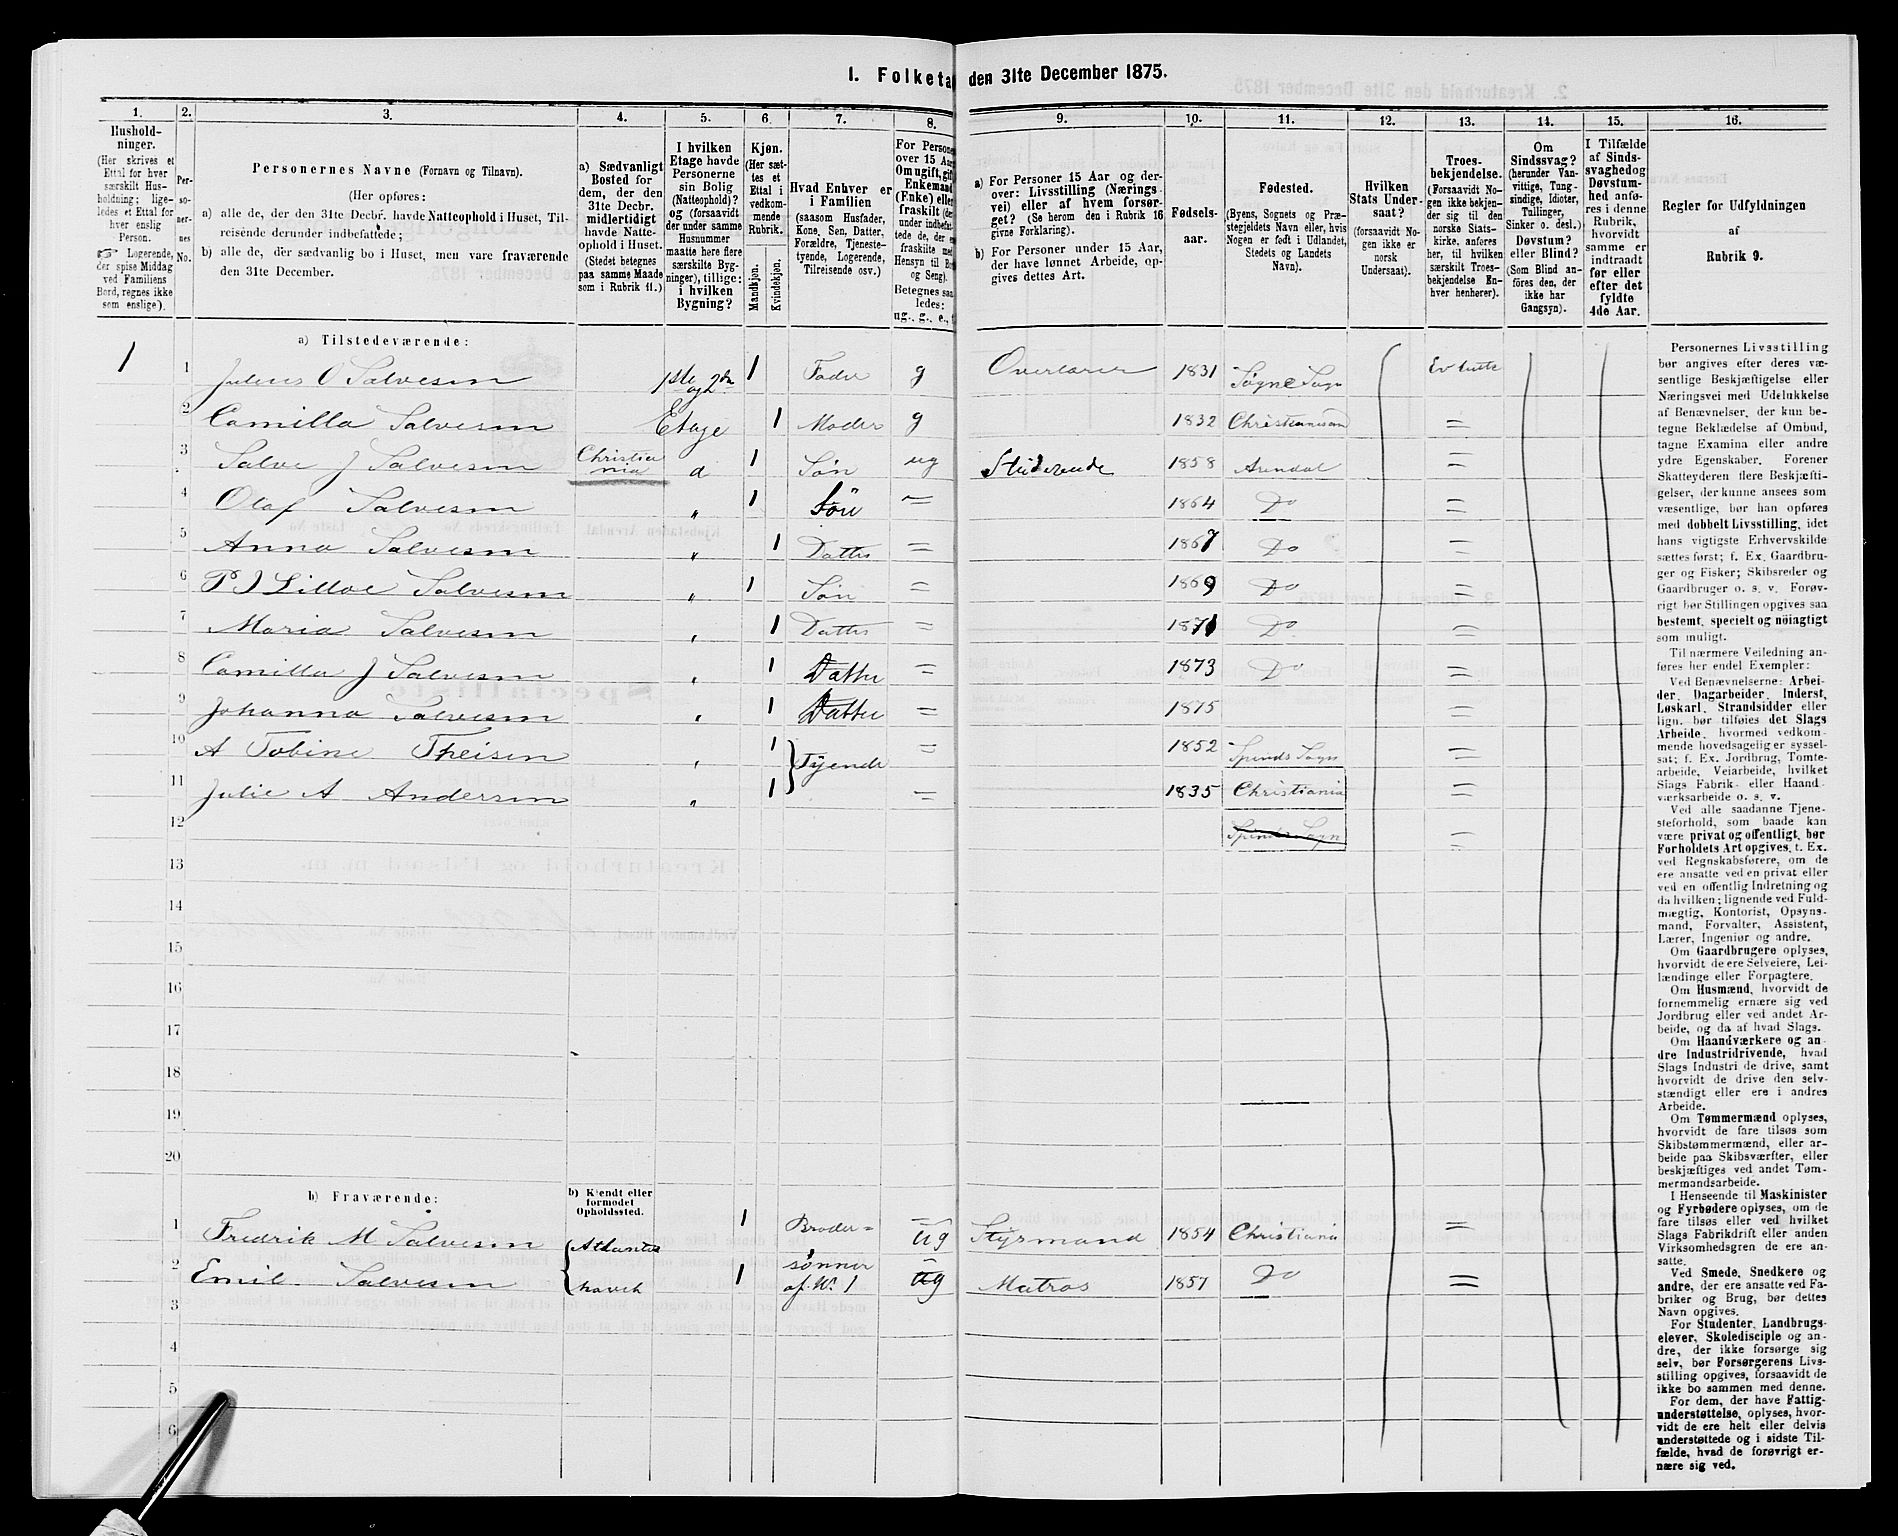 I. Folketa den 31te December 1875.
1. 2. 3. 4. 5. 6. 7. 8. 9. 10. 11. 12. 13. 14. 15. 16.
Hushold-
ninger.
(Her skrives et
Ettal for hver
særskilt Hus-
holdning; lige-
ledes et Ettal for
hver enslig
Person.
☞ Logerende,
der spise Middag
ved Familiens
Bord, regnes ikke
som enslige).
Per-
so-
ner-
nes
No.
Personernes Navne (Fornavn og Tilnavn).
(Her opføres:
a) alle de, der den 31te Decbr. havde Natteophold i Huset, Til-
reisende derunder indbefattede;
b) alle de, der sædvanlig bo i Huset, men vare fraværende
den 31te December.
a) Sædvanligt
Bosted for
dem, der den
31te Decbr.
midlertidigt
havde Natte-
ophold i Huset.
(Stedet betegnes
paa samme Maade
som i Rubrik 11.)
I hvilken
Etage havde
Personerne
sin Bolig
(Natteophold)?
og (forsaavidt
der under samme
Husnummer
maatte være flere
særskilte Byg-
ninger), tillige:
i hvilken
Bygning?
Kjøn.
(Her sæt-
tes et
Ettal i
vedkom-
mende
Rubrik.
Mandkjøn.
Kvindekjøn.
Hvad Enhver er
i Familien
(saasom Husfader,
Kone, Søn, Datter,
Forældre, Tjeneste-
tyende, Logerende,
Tilreisende osv.)
For Persone
over 15 Aar
Om ugift, gif
Enkemand
(Enke) elle
fraskilt (de
under indbefat
tede de, der e
fraskilte med
Hensyn til Bo
og Seng).
Betegnes saa
ledes:
ug., g., e.,
a) For Personer 15 Aar og der-
over: Livsstilling (Nærings-
vei) eller af hvem forsør-
get? (Se herom den i Rubrik 16
givne Forklaring).
b) For Personer under 15 Aar,
der have lønnet Arbeide, op-
gives dettes Art.
Fødsels-
aar.
Fødested.
(Byens, Sognets og Præ-
stegjeldets Navn eller, hvis
Nogen er født i Udlandet,
Stedets og Landets
Navn).
Hvilken
Stats Under-
saat?
(forsaavidt No-
gen ikke er
norsk
Undersaat).
Troes-
bekjendelse.
(Forsaavidt No-
gen ikke bekjen-
der sig til den
norske Stats-
kirke, anføres
her, til hvilken
særskilt Troes-
bekjendelse En-
hver henhører).
Om
Sindssvag?
(herunder Van-
vittige, Tung-
sindige, Idioter,
Tullinger,
Sinker o. desl.)
Døvstum?
eller Blind?
(Som Blind an-
føres den, der
ikke har
Gangsyn).
I Tilfælde
af Sinds-
svaghed og
Døvstum-
hed anfø-
res i denne
Rubrik,
hvorvidt
samme er
indtraadt
før eller
efter det
fyldte
4de Aar.
Regler for Udfyldningen
af
Rubrik 9.
a) Tilstedeværende:
1 1 Julius O Salvesen 1ste og 2den 1 Fader g Overlærer 1831 Søgne Sogn Ev luth
2 Camilla Salvesen Etage 1 Moder g 1832 Christiansand =
3 Salve J Salvesen Christiania a 1 Søn ug Studerende 1858 Arendal =
4 Olaf Salvesen " 1 Søn = 1864 Do =
5 Anna Salvesen " 1 Datter = 1867 Do =
6 P J Lilloe Salvesen " 1 Søn = 1869 Do =
7 Maria Salvesen " 1 Datter = 1871 Do =
8 Camilla J Salvesen " 1 Datter = 1873 Do =
9 Johanna Salvesen " 1 Datter = 1875 =
10 A Tobine Theisen " 1 Tyende = 1852 Spinds Sogn =
11 Julie A Andersen " 1 = 1835 Christiania =
12 Spinds Sogn =
13
14
15
16
17
18
19
20
b) Fraværende:
b) Kjendt eller
formodet
Opholdssted.
1 Fredrik M Salvesen Atlanter 1 Broder= ug Styrmand 1854 Christiania =
2 Emil Salvesen havet 1 sønner af No. 1 ug Matros 1857 Do =
3
4
5
6
Personernes Livsstilling
bør angives efter deres væ-
sentlige Beskjæftigelse eller
Næringsvei med Udelukkelse
af Benævnelser, der kun be-
tegne Beklædelse af Ombud,
tagne Examina eller andre
ydre Egenskaber. Forener
Skatteyderen flere Beskjæfti-
gelser, der kunne ansees som
væsentlige, bør han opføres
med dobbelt Livsstilling, idet
hans vigtigste Erhvervskilde
sættes først; f. Ex. Gaardbru-
ger og Fisker; Skibsreder og
Gaardbruger o. s. v. Forøv-
rigt bør Stillingen opgives saa
bestemt, specielt og nöiagtigt
som muligt.
Til nærmere Veiledning an-
føres her endel Exempler:
Ved Benævnelserne: Arbei-
der, Dagarbeider, Inderst,
Løskarl, Strandsidder eller
lign. bør tilføies det Slags
Arbeide, hvormed vedkom-
mende hovedsagelig er syssel-
sat; f. Ex. Jordbrug, Tomte-
arbeide, Veiarbeide, hvilket
Slags Fabrik- eller Haand-
værksarbeide o. s. v.
Ved alle saadanne Tjene-
steforhold, som baade kan
være privat og offentligt, bør
Forholdets Art opgives, t. Ex.
ved Regnskabsførere, om de
ere ansatte ved en privat eller
ved en offentlig Indretning og
da hvilken; lignende ved Fuld-
mægtig, Kontorist, Opsyns-
mand, Forvalter, Assistent,
Lærer, Ingeniør og andre.
Om Gaardbrugere oplyses,
hvorvidt de ere Selveiere, Lei-
lændinge eller Forpagtere.
Om Husmænd, hvorvidt de
fornemmelig ernære sig ved
Jordbrug eller ved andet Ar-
beide, og da af hvad Slags.
Om Haandværkere og an-
dre Industridrivende, hvad
Slags Industri de drive, samt
hvorvidt de drive den selv-
stændigt eller ere i andres
Arbeide.
Om Tømmermænd oplyses,
hvorvidt de fare tilsøs som
Skibstømmermænd, eller ar-
beide paa Skibsværfter, eller
beskjæftiges ved andet Tøm-
mermandsarbeide.
I Henseende til Maskinister
og Fyrbødere oplyses, om de
fare tilsøs eller ved hvilket
Slags Fabrikdrift eller anden
Virksomhedsgren de ere an-
satte.
Ved Smede, Snedkere og
andre, der ere ansatte ved Fa-
briker og Brug, bør dettes
Navn opgives.
For Studenter, Landbrugs-
elever, Skoledisciple og an-
dre, der ikke forsørge sig
selv, bør Forsørgerens Livs-
stilling opgives, forsaavidt de
ikke bo sammen med denne.
For dem, der have Fattig-
understøttelse, oplyses, hvor-
vidt de ere helt eller delvis
understøttede og i sidste Til-
fælde, hvad de forøvrigt er-
nære sig ved.